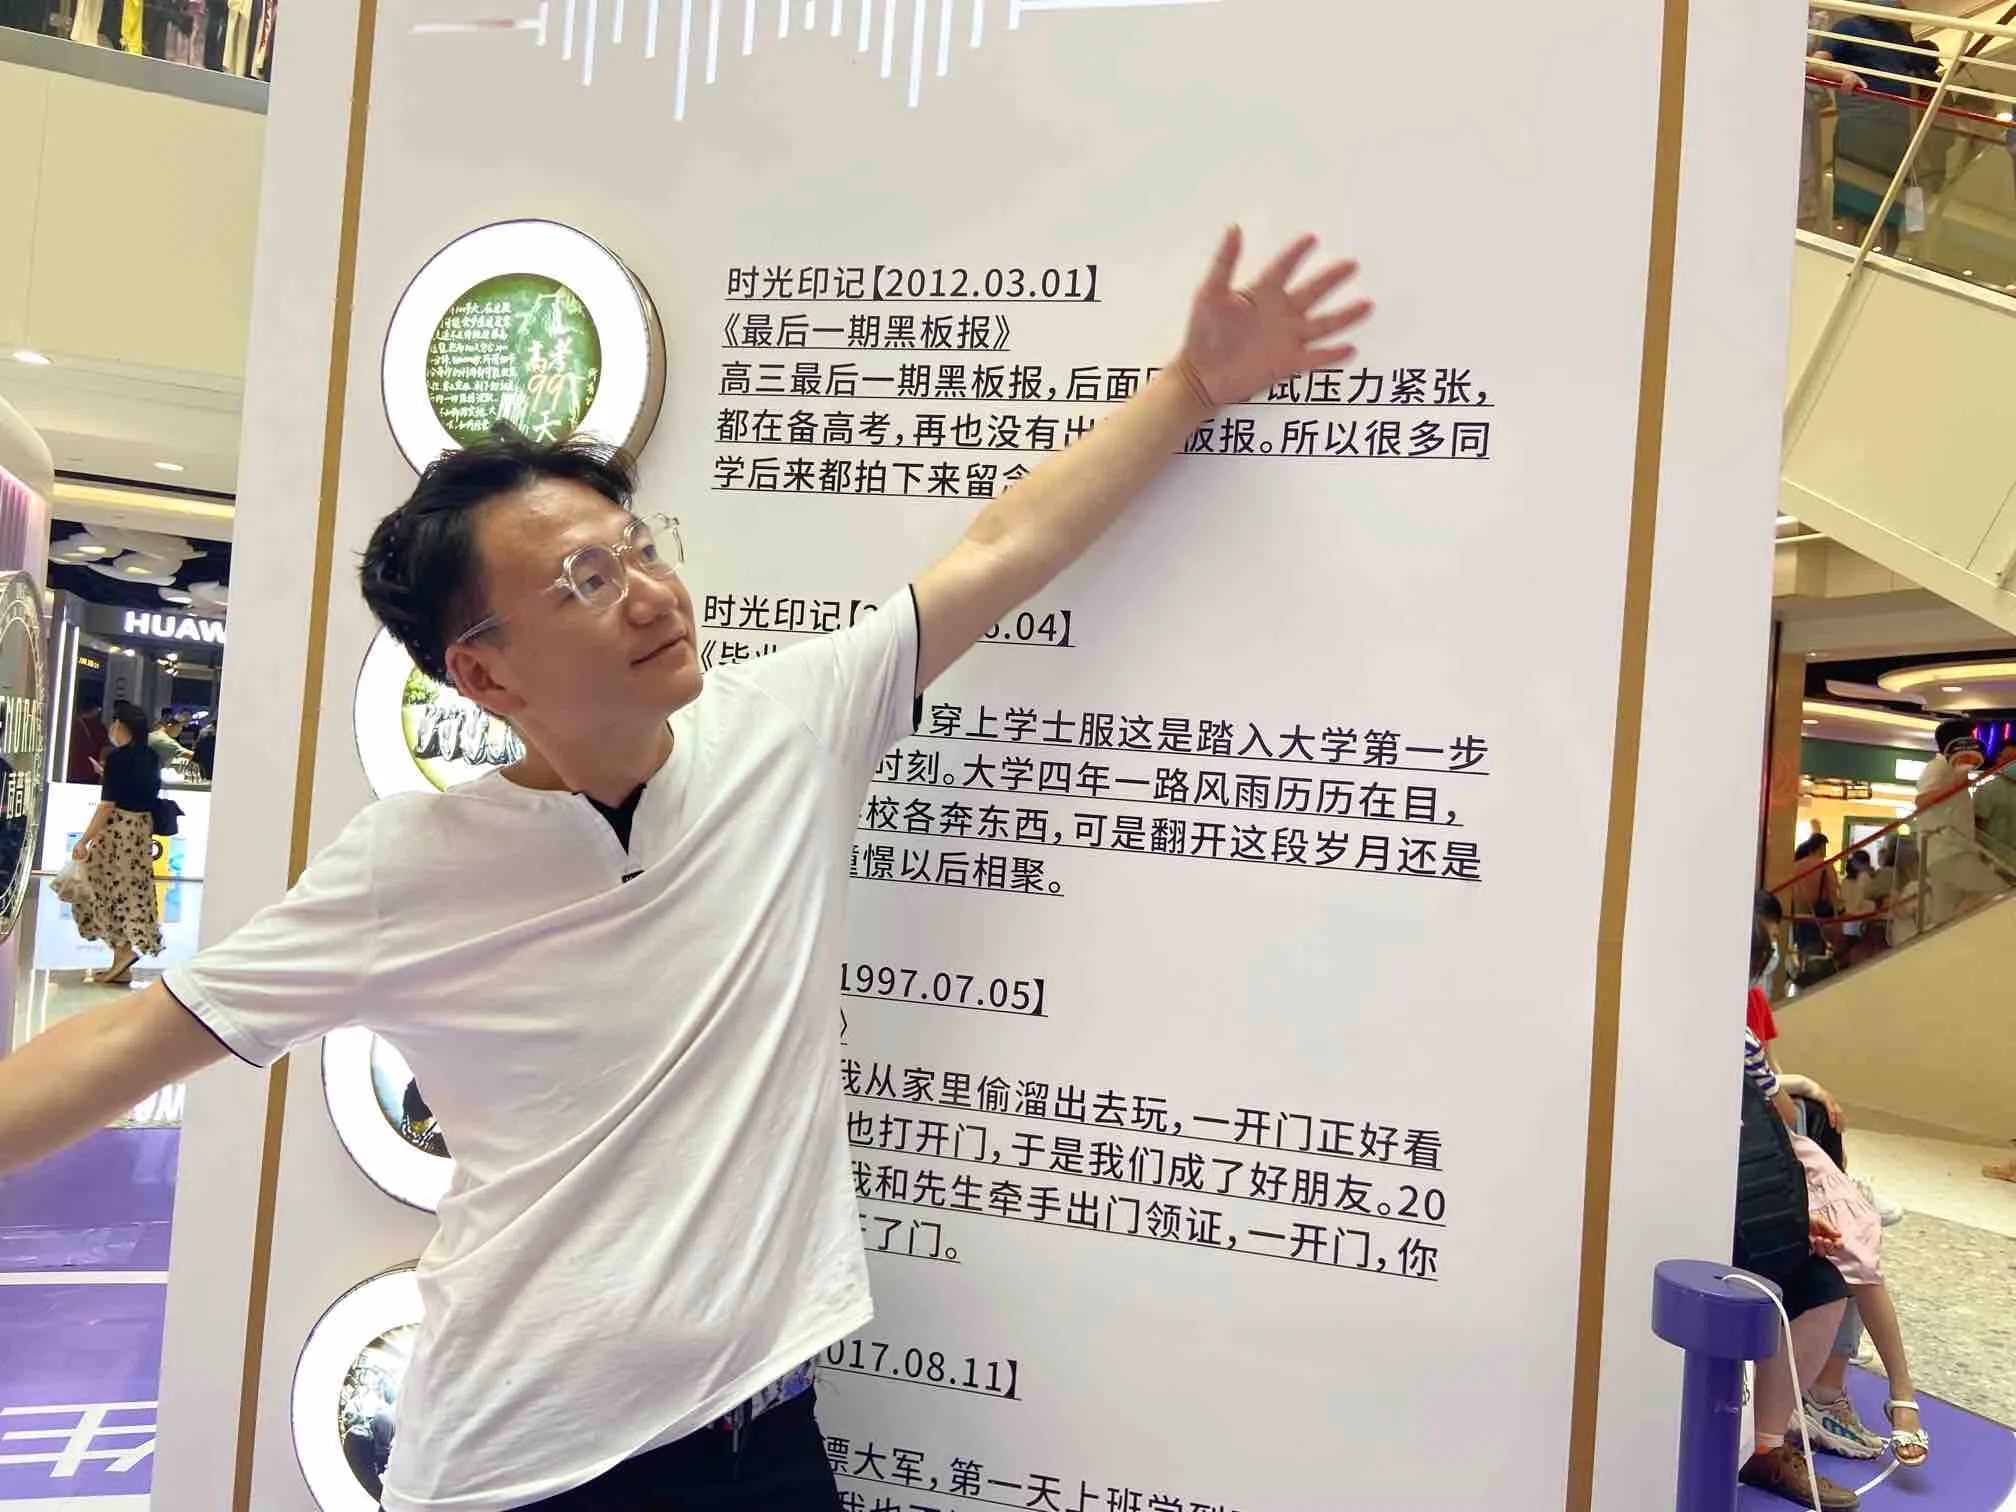 时光印记【2012.03.01】
《最后一期黑板报》
高三最后一期黑板报，后面 试压力紧张，
都在备高考，再也没有出 版报。所以很多同
学后来都拍下来留念
高考
99
天
时光印记【2 6.04】
《毕业
穿上学士服这是踏入大学第一步
时刻。大学四年一路风雨历历在目，
校各奔东西，可是翻开这段岁月还是
憧憬以后相聚。
1997.07.05】
》
我从家里偷溜出去玩，一开门正好看
也打开门，于是我们成了好朋友。20
我和先生牵手出门领证，一开门，你
开了门。
017.08.11】
漂大军，第一天上班
HUAW